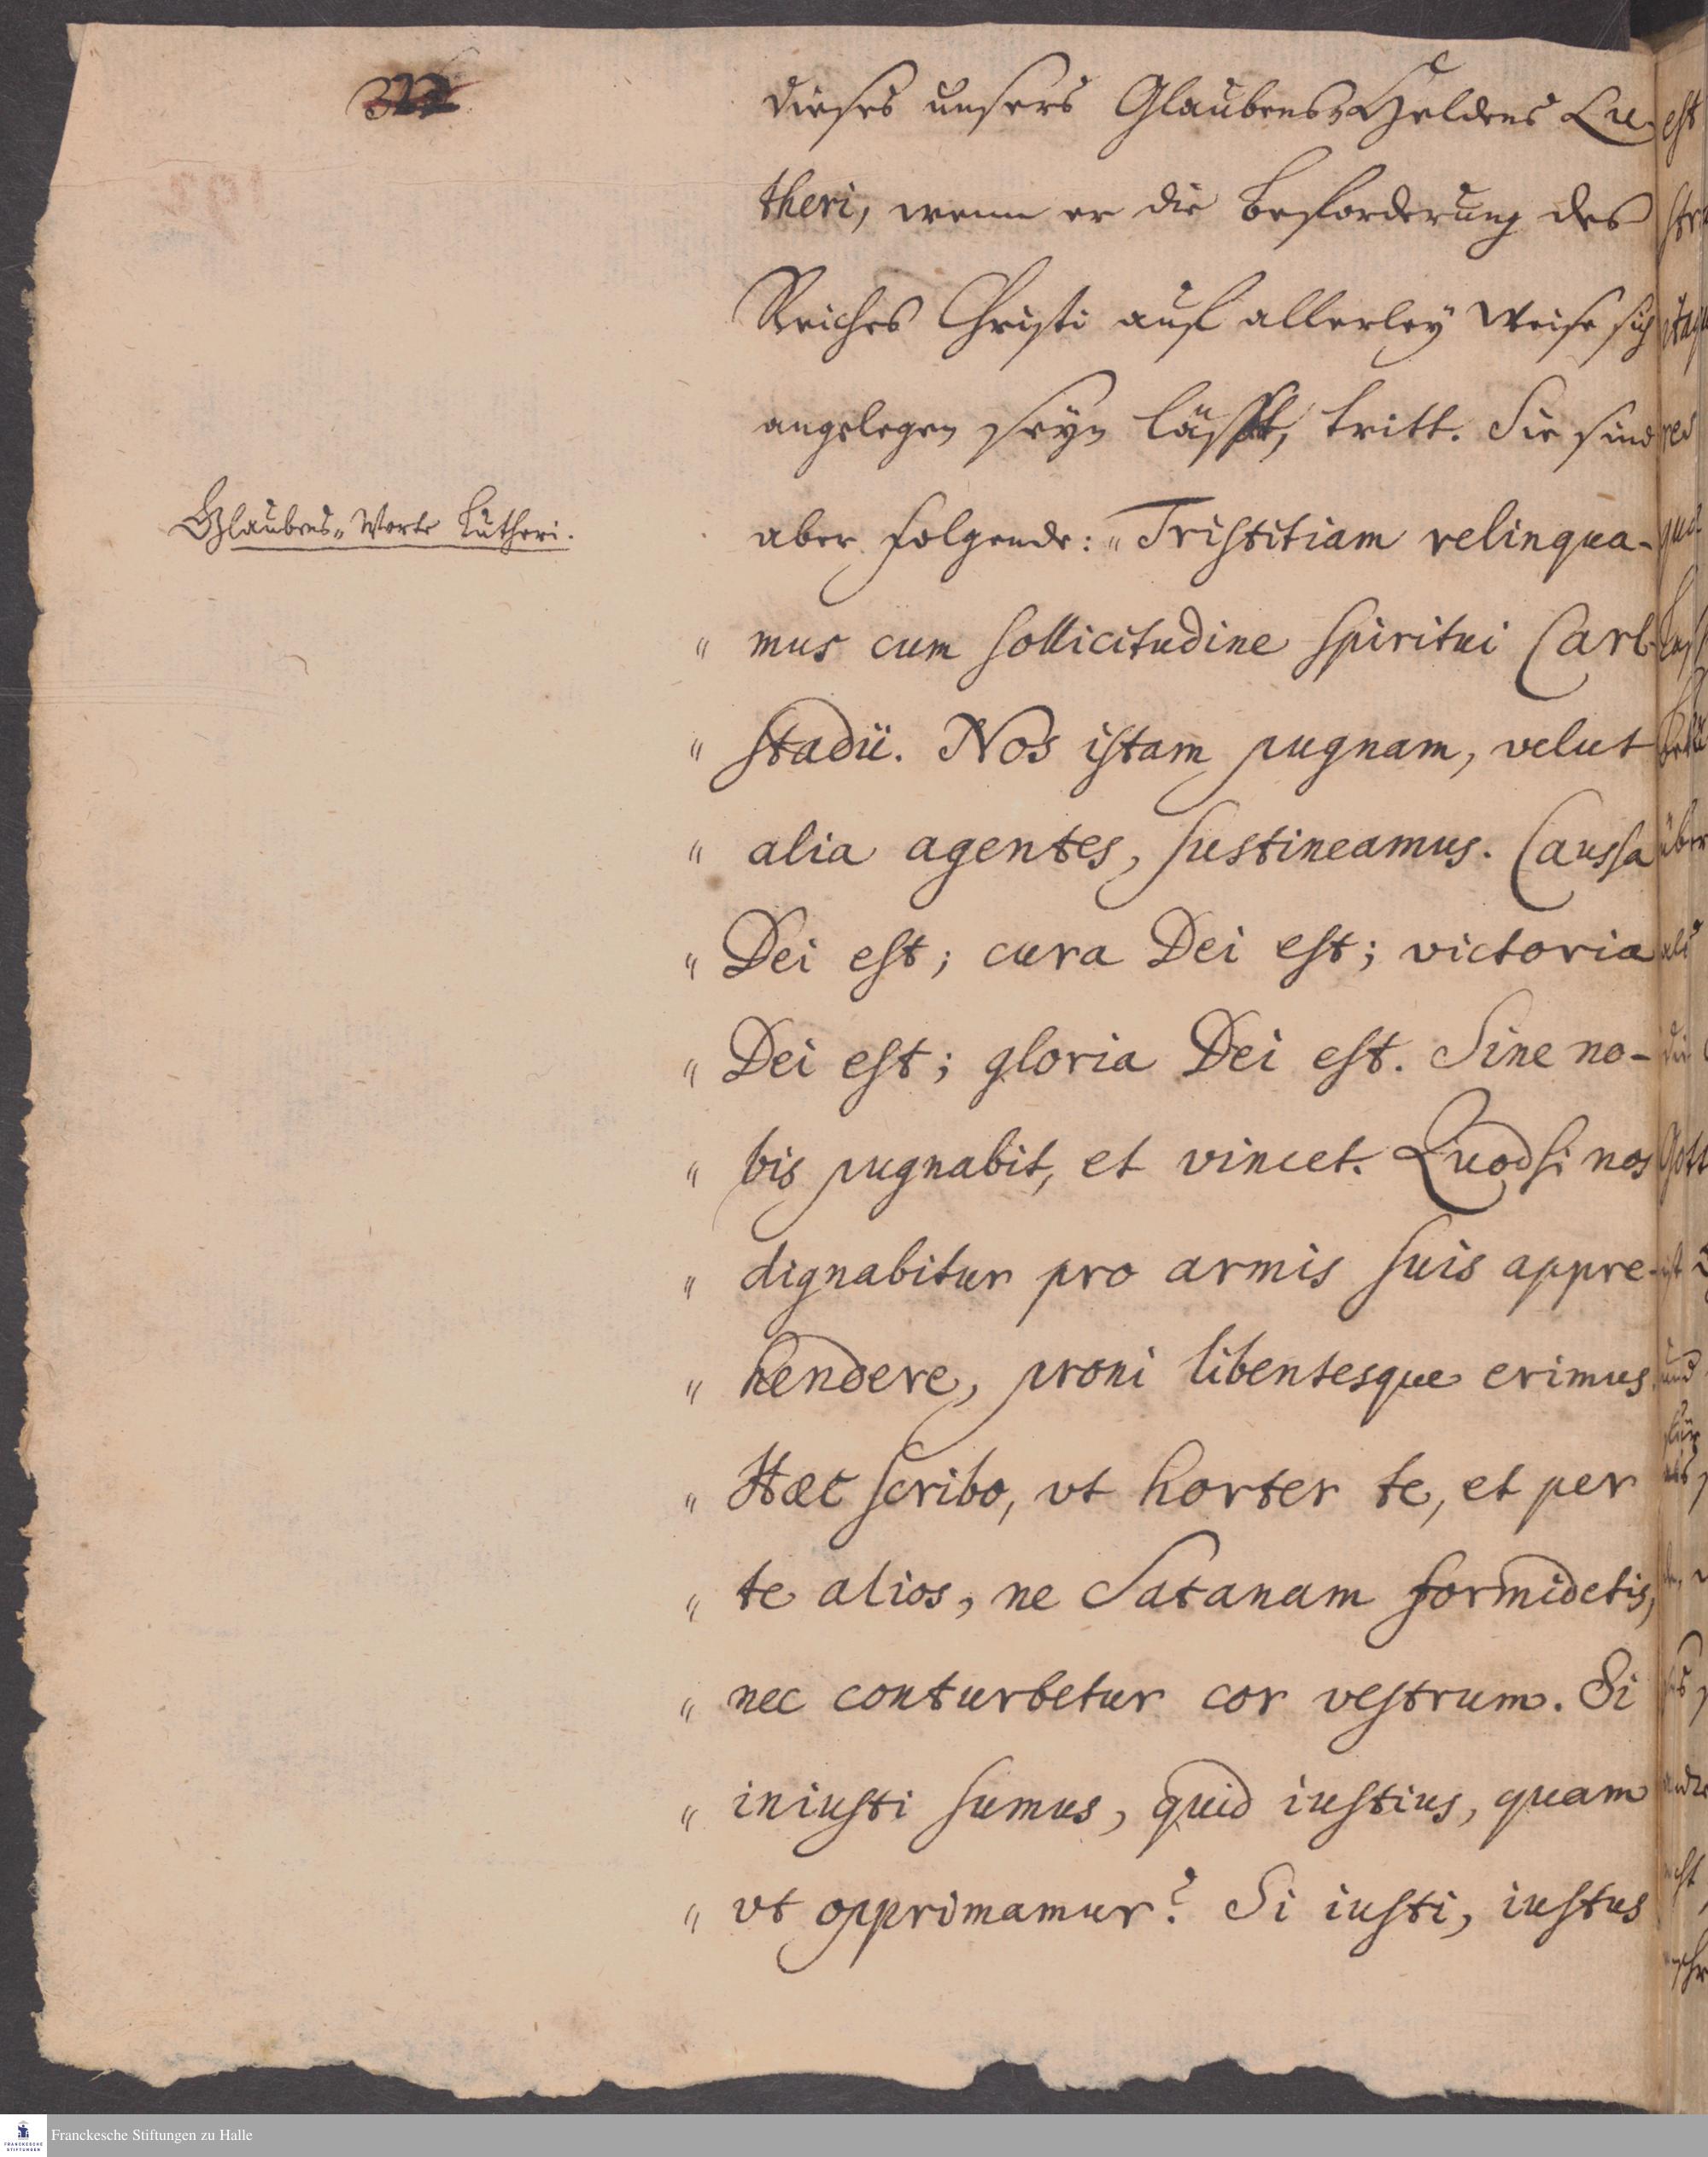 dieses unsers Glaubens-Heldens Lu-
theri, wenn er die Beforderung des
Reiches Christi auf allerley Weise sich
angelegen seyn läßt, tritt. Sie sind
Glaubens-Worte Lutheri.
aber folgende: „Tristitiam relinqua-
„ mus cum sollicitudine spiritui Carl-
„ stadii. Nos istam pugnam, velut
„ alia agentes, sustineamus. Caussa
„ Dei est; cura Dei est; victoria
„ Dei est; gloria Dei est. Sine no-
„ bis pugnabit, et vincet. Quodsi nos
„ dignabitur pro armis suis appre-
„ hendere, proni libentesque erimus.
„ Haec scribo, vt horter te, et per
„ te alios, ne Satanam formidetis,
„ nec conturbetur cor vestrum. Si
„ iniusti sumus, quid iustius, quam
„ vt opprimamur? Si iusti, iustus
Franckesche Stiftungen zu Halle
FRANCKESCHE
STIFTUNGEN